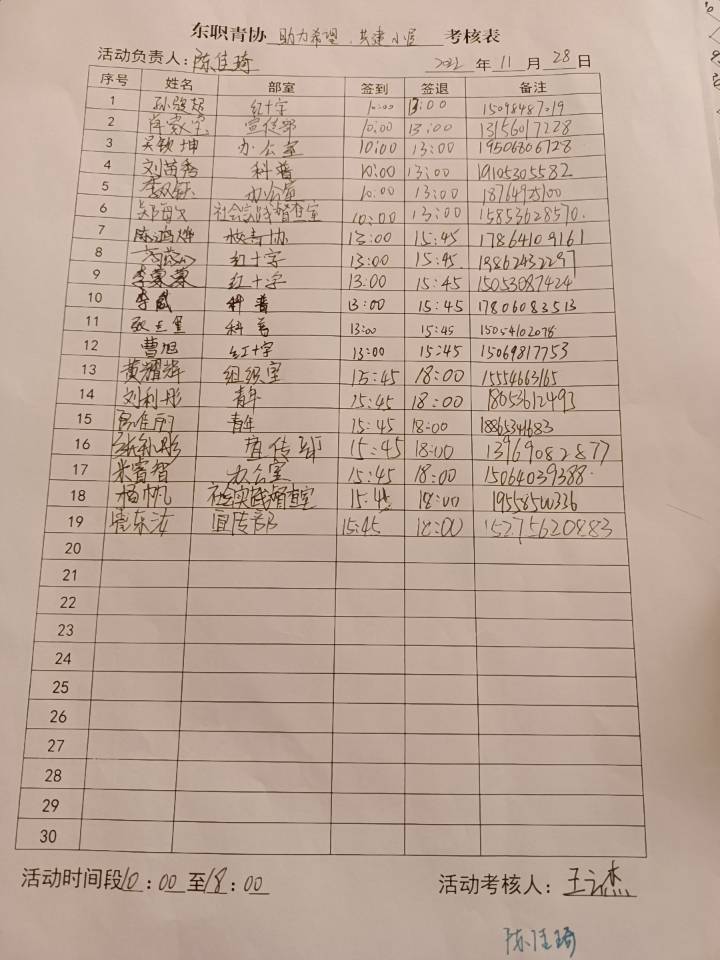 东职青协 助力希望、共建小屋 考核表
活动负责人：陈佳琦 2022 年 11 月 28 日
序号 姓名 部室 签到 签退 备注
1 红十字 10:00 13:00 15098487019
2 宣传部 10:00 13:00 13156017228
3 吴钦坤 办公室 10:00 13:00 19506806728
4 刘苗秀 科普 10:00 13:00 19105305582
5 办公室 10:00 13:00
6 社会实践督查室 10:00 13:00 15853628570
7 陈鸿烨 校青协 13:00 15:45 17864109161
8 红十字 13:00 15:45 19862432297
9 李蒙蒙 红十字 13:00 15:45 15053087424
10 李威 科普 13:00 15:45 17806083513
11 科普 13:00 15:45 15054102078
12 曹旭 红十字 13:00 15:45 15069817753
13 黄耀辉 组织室 15:45 18:00 15554663165
14 刘利彤 青年 15:45 18:00 18653612493
15 青年 15:45 18:00
16 宣传部 15:45 18:00 13969082877
17 米睿智 办公室 15:45 18:00 15064039388
18 杨帆 社会实践督查室 15:45 18:00 19558500336
19 宣传部 15:45 18:00 15275620883
20
21
22
23
24
25
26
27
28
29
30
活动时间段10:00至18:00 活动考核人：
陈佳琦